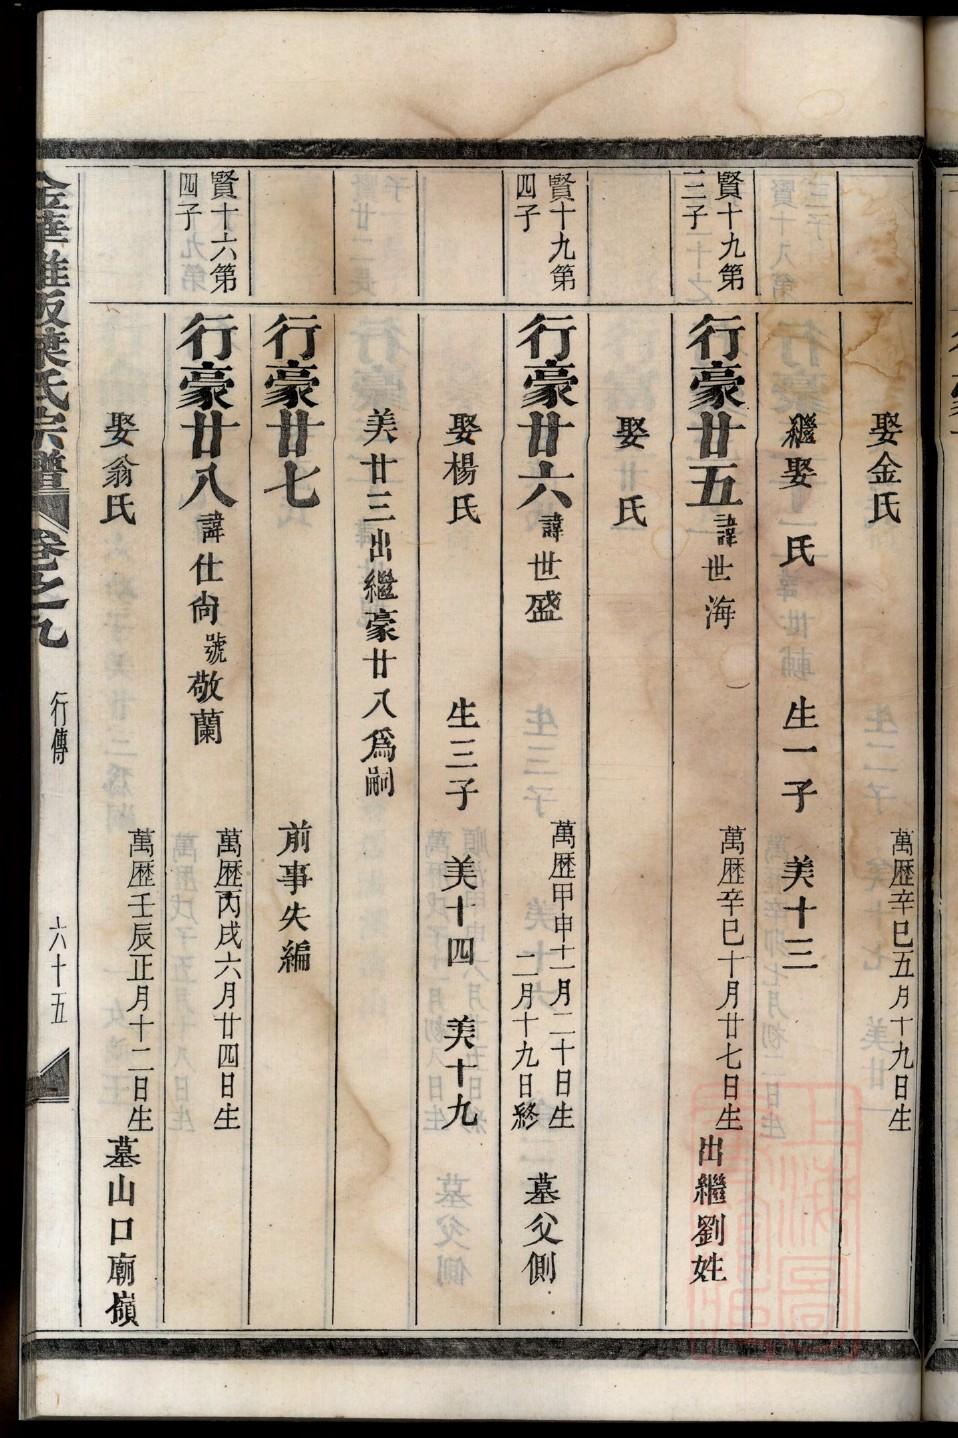 娶金氏 萬歷辛巳五月十九日生
繼娶 氏 生一子 美十三
賢十九第三子 行豪廿五 諱世海 萬歷辛巳十月廿七日生 出繼劉姓
娶 氏
賢十九第四子 行豪廿六 諱世盛 萬歷甲申十一月二十日生 二月十九日終 墓父側
娶楊氏 生三子 美十四 美十九
美廿三出繼豪廿八爲嗣
行豪廿七 前事失編
賢十六第四子 行豪廿八 諱仕尙號敬蘭 萬歷丙戌六月廿四日生
娶翁氏 萬歷壬辰正月十二日生 墓山口廟嶺
金華 阪葉氏宗譜 卷之九 行傳 六十五